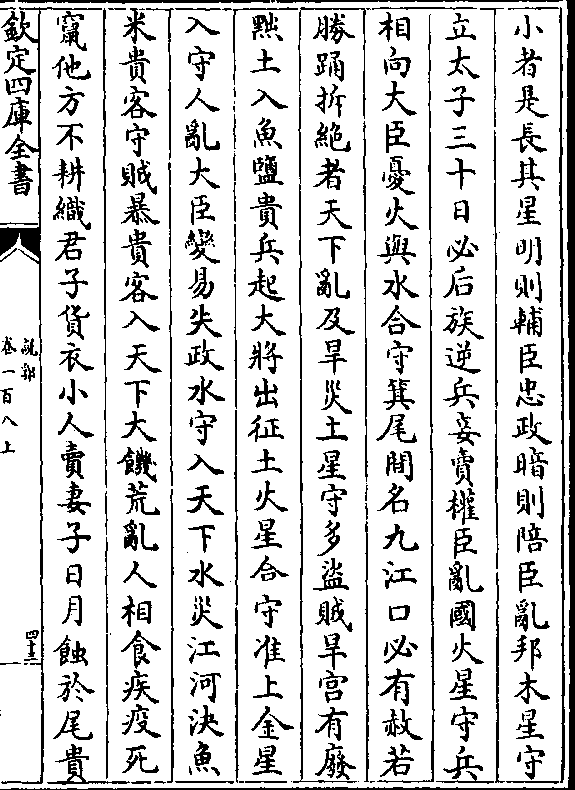 小者是長其星明則輔臣忠政暗則陪臣亂邦木星守
立太子三十日必后族逆兵妾賣權臣亂國火星守兵
相向大臣憂火與水合守箕尾間名九江口必有赦若
勝踊拆絶者天下亂及旱災土星守多盜賊旱宫有廢
黜土入魚鹽貴兵起大將出征土火星合守准上金星
入守人亂大臣變易失政水守入天下水災江河決魚
米貴客守賊暴貴客入天下大饑荒亂人相食疾疫死
竄他方不耕織君子貨衣小人賣妻子日月蝕於尾貴
欽定四庫全書
說郛
卷一百八上
四十三